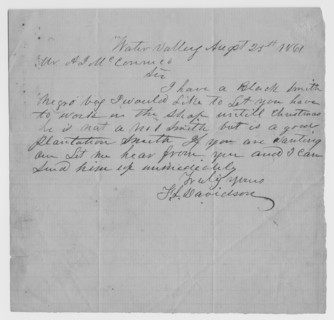 Water Valley Augst 25st 1861
Mr A. J. McConnico
Sir
I have a Black Smith
Negro boy I would like to let you have
to work in the Shop untill Christmas
he is not a No 1 Smith but is a good
Plantation Smith If you are wanting
one let me hear from you and I can
Send him up immediately
Truly Yours
Davidson